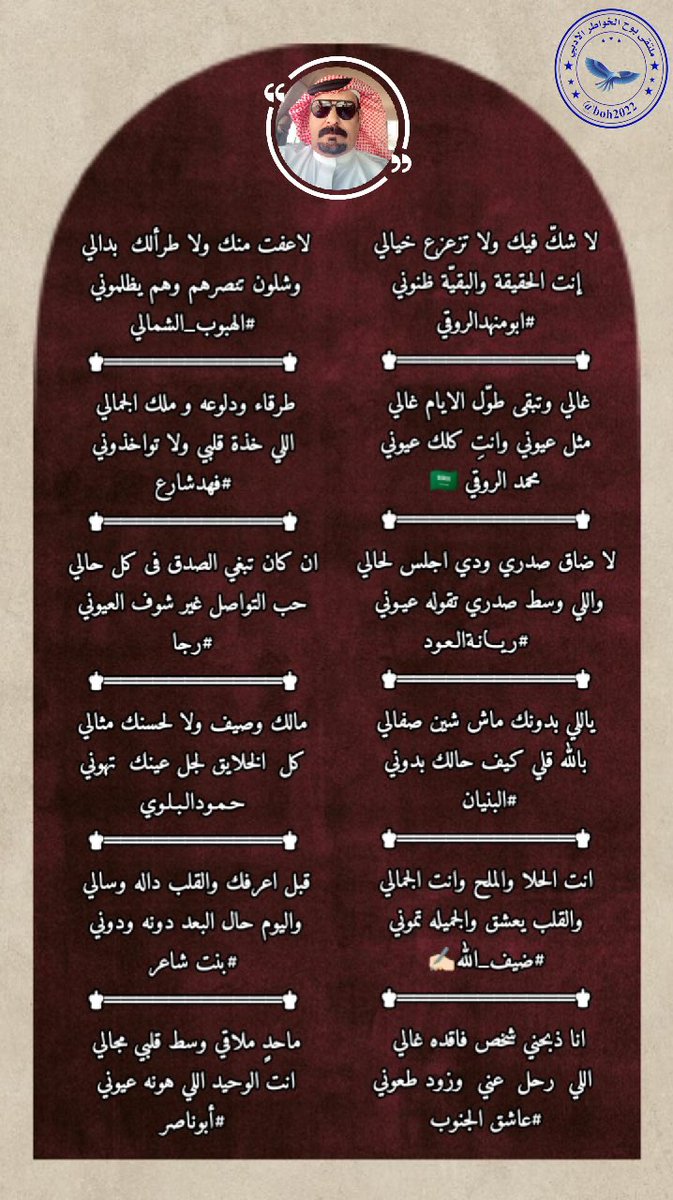 ملتقى بوح الخواطر الادبي
@boh2022
لا شكّ فيك ولا تزعزع خيالي
إنت الحقيقة والبقيّة ظنوني
#ابومنهدالروقي
لاعفت منك ولا طرألك بدالي
وشلون تنصرهم وهم يظلموني
#الهبوب_الشمالي
غالي وتبقى طوّل الايام غالي
مثل عيوني وانتِ كلك عيوني
محمد الروقي 🇸🇦
طرقاء ودلوعه و ملك الجمالي
اللي خذة قلبي ولا تواخذوني
#فهدشارع
لا ضاق صدري ودي اجلس لحالي
واللي وسط صدري تقوله عيوني
#ريـانةالعود
ان كان تبغي الصدق فى كل حالي
حب التواصل غير شوف العيوني
#رجا
ياللي بدونك ماش شين صفالي
بالله قلي كيف حالك بدوني
#البنيان
مالك وصيف ولا لحسنك مثالي
كل الخلايق لجل عينك تهوني
حمودالبلوي
انت الحلا والملح وانت الجمالي
والقلب يعشق والجميله تموني
#ضيف_الله✍🏻
قبل اعرفك والقلب داله وسالي
واليوم حال البعد دونه ودوني
#بنت شاعر
انا ذبحني شخص فاقده غالي
اللي رحل عني وزود طعوني
#عاشق الجنوب
ماحدٍ ملاقي وسط قلبي مجالي
انت الوحيد اللي هونه عيوني
#أبوناصر